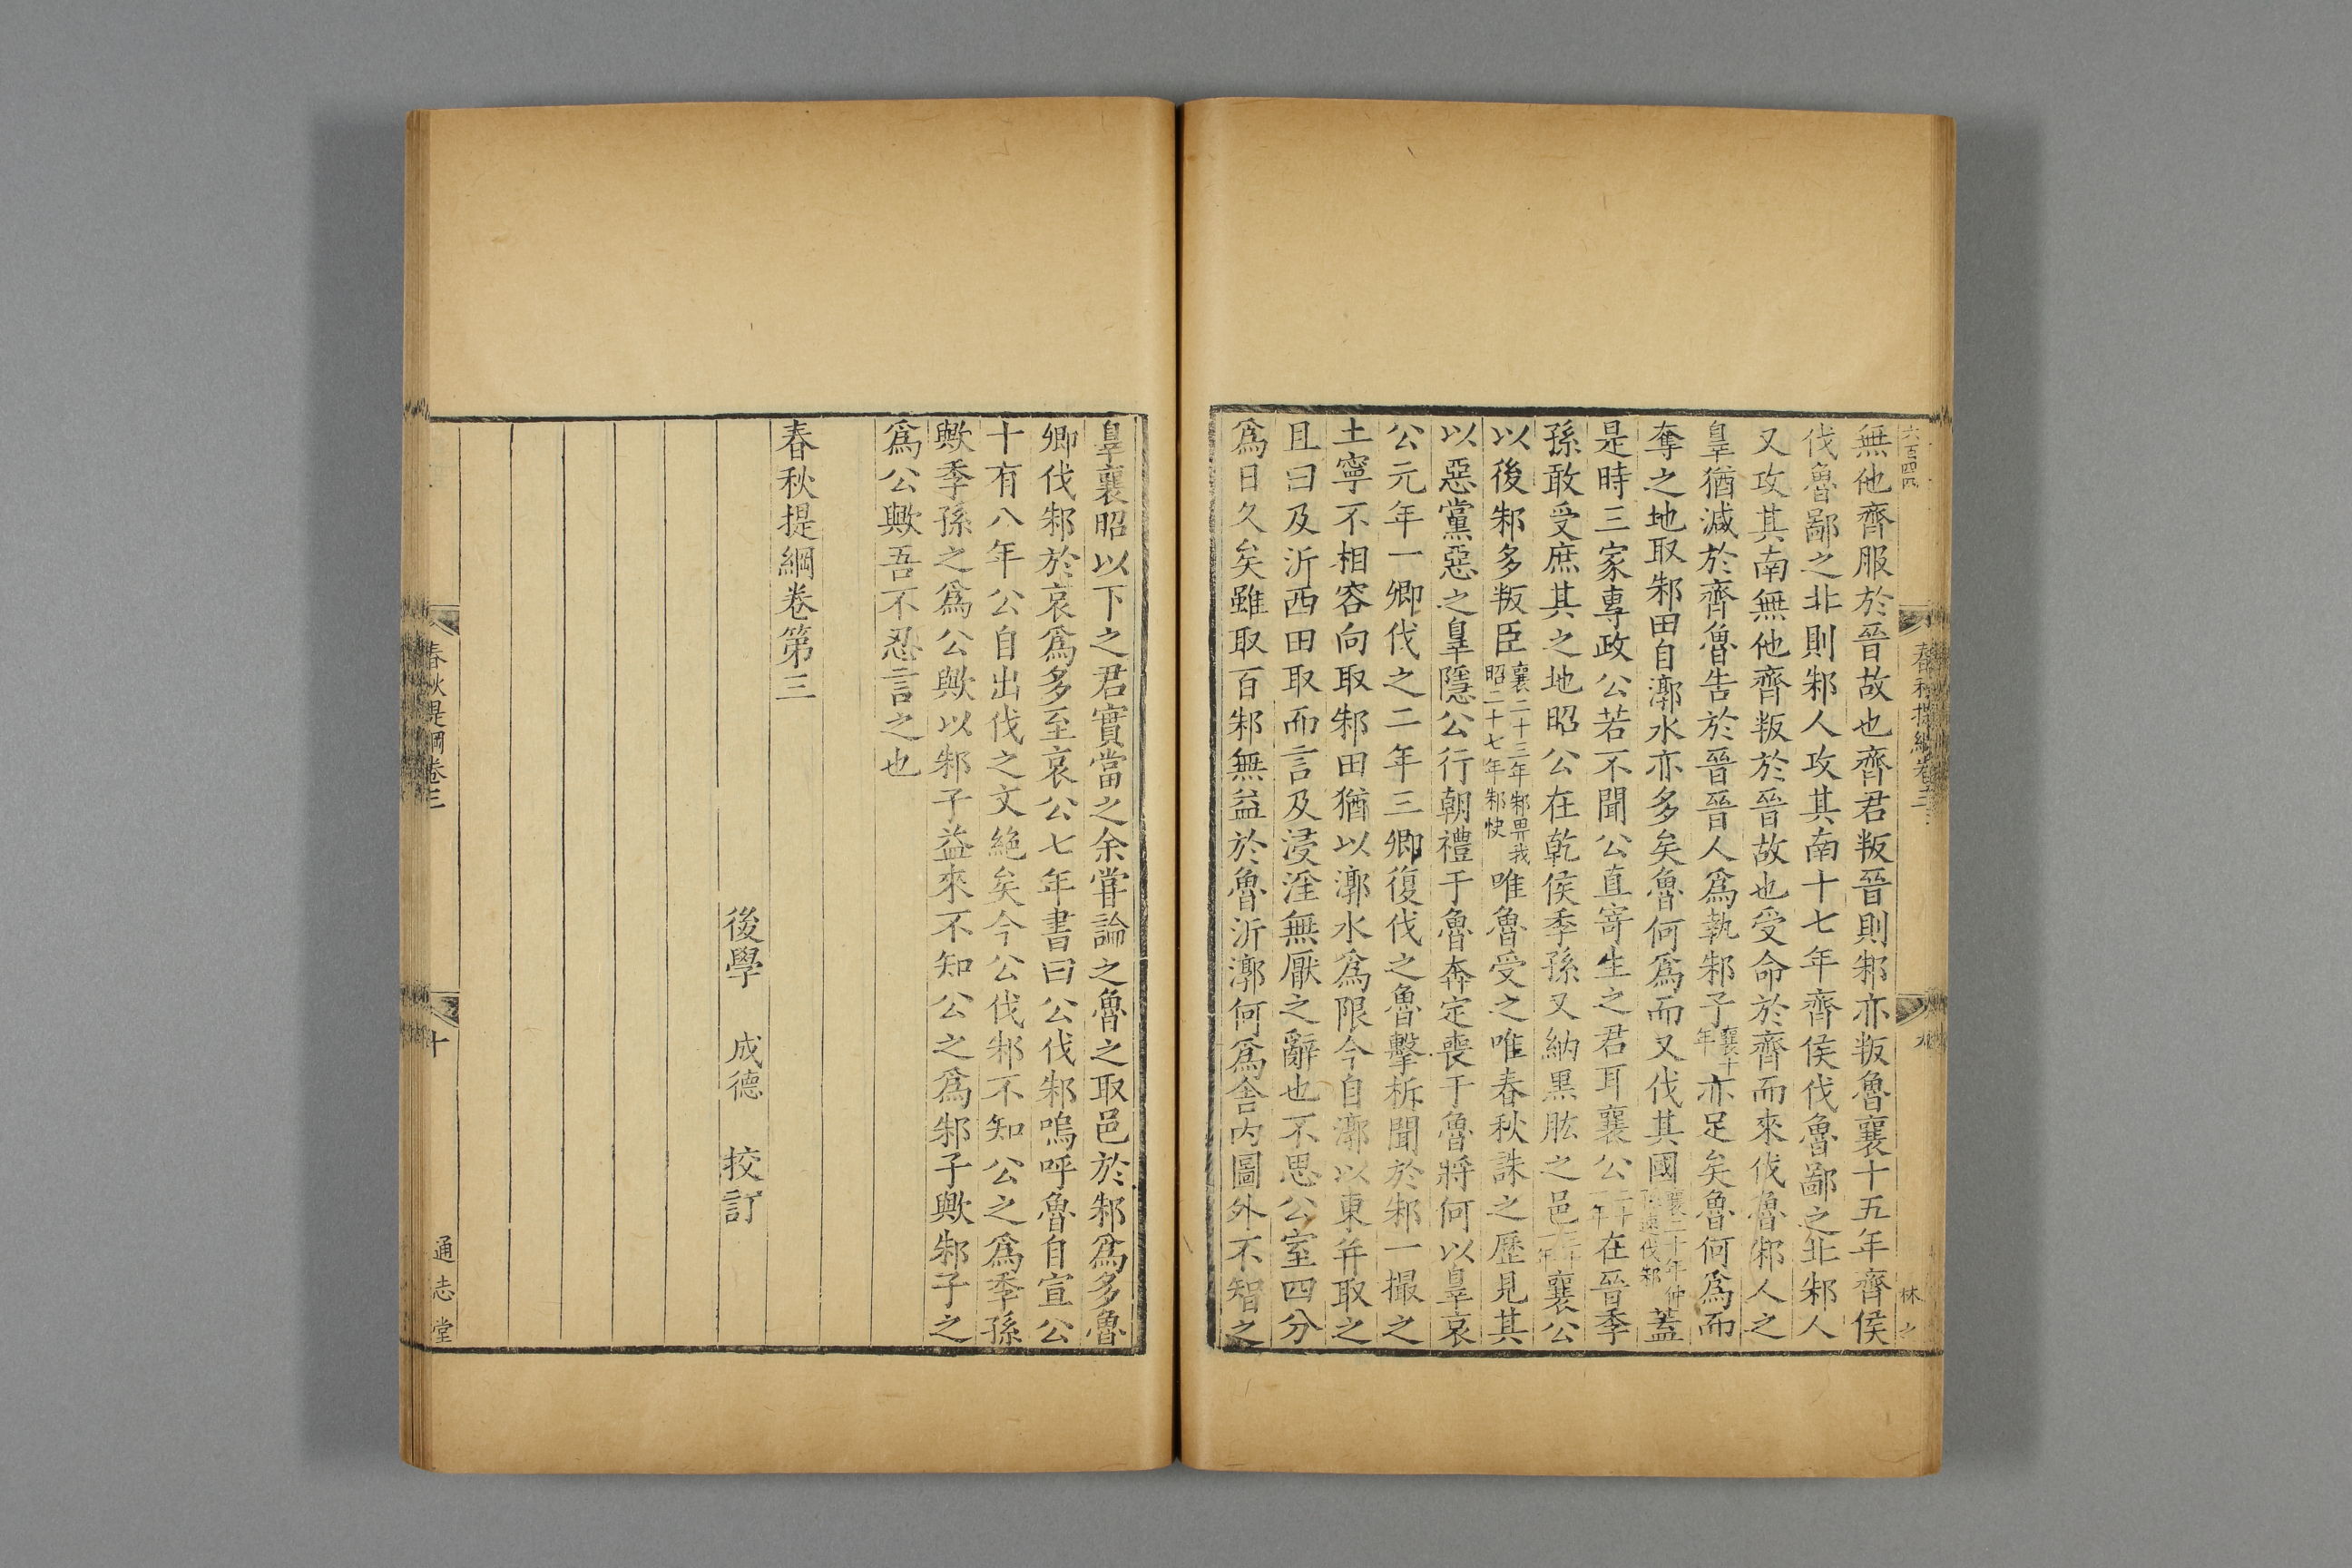 六百四四
無他齊服於晉故也齊君叛晉則邾亦叛魯襄十五年齊侯
伐魯鄙之北則邾人攻其南十七年齊侯伐魯鄙之北邾人
又攻其南無他齊叛於晉故也受命於齊而來伐魯邾人之
辠猶減於齊魯告於晉晉人爲執邾子襄十年亦足矣魯何爲而
奪之地取邾田自漷水亦多矣魯何爲而又伐其國襄二十年仲孫速伐邾蓋
是時三家專政公若不聞公直寄生之君耳襄公二十一年在晉季
孫敢受庶其之地昭公在乾侯季孫又納黑肱之邑襄公
以後邾多叛臣襄二十三年邾畀我昭二十七年邾快唯魯受之唯春秋誅之歷見其
以惡黨惡之辠隱公行朝禮于魯奔定喪于魯將何以辠哀
公元年一卿伐之二年三卿復伐之魯擊柝聞於邾一撮之
土寧不相容向取邾田猶以漷水爲限今自漷以東并取之
且曰及沂西田取而言及浸淫無厭之辭也不思公室四分
爲日久矣雖取百邾無益於魯沂漷何爲舍內圖外不智之
春秋提綱卷三
九
林
辠襄昭以下之君實當之余嘗論之魯之取邑於邾爲多魯
卿伐邾於哀爲多至哀公七年書曰公伐邾嗚呼魯自宣公
十有八年公自出伐之文絕矣今公伐邾不知公之爲季孫
歟季孫之爲公歟以邾子益來不知公之爲邾子歟邾子之
爲公歟吾不忍言之也
春秋提綱卷第三
後學 成德 挍訂
春秋提綱卷三
十
通志堂